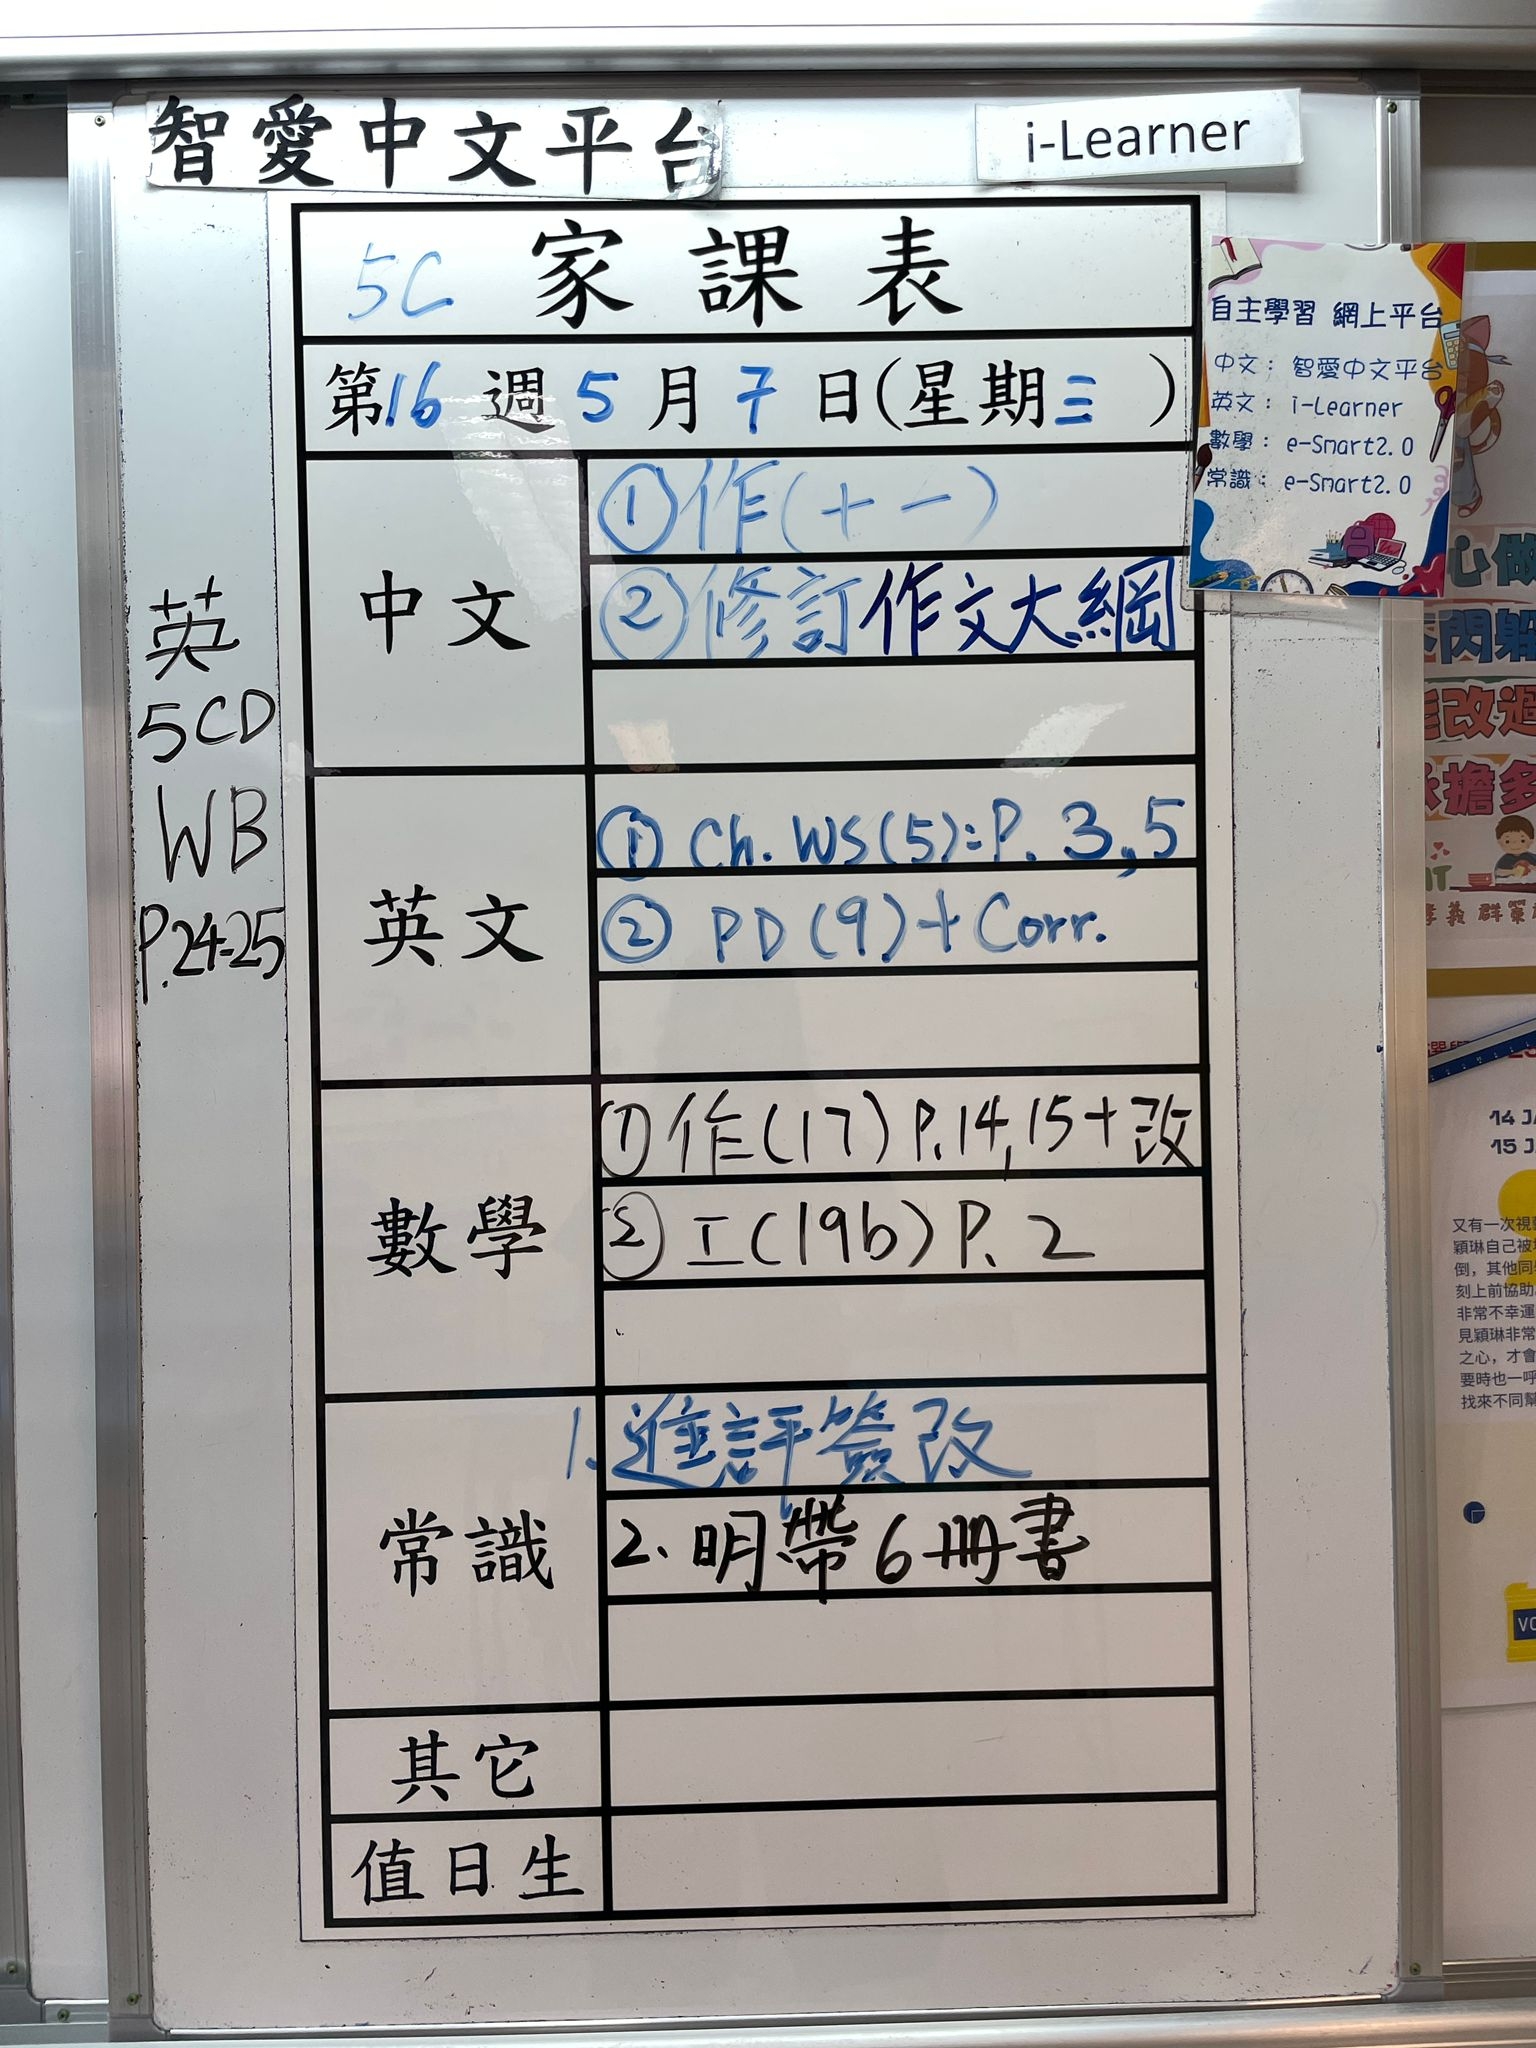 智愛中文平台
i-Learner
5C 家課表
第16週5月7日(星期三)
中文
①作(十一)
②修訂作文大綱
英文
① Ch. WS(5): P. 3, 5
② PD(9)+Corr.
數學
①作(17) P.14, 15+改
②工(19b) P. 2
常識
1. 進評簽改
2. 明帶6冊書
其它
值日生
英
5CD
WB
P.24-25
自主學習 網上平台
中文：智愛中文平台
英文：i-Learner
數學：e-Smart2.0
常識：e-Smart2.0
心做
閃躲
改過
擔多
義 群
14 JA
15 J
又有一次視
穎琳自己被
倒，其他同
刻上前協助
非常不幸運
見穎琳非常
之心，才會
要時也一呼
找來不同幫